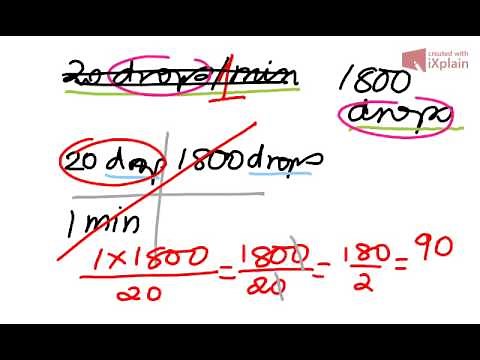 created with
iXplain
20 drops/min 1800
drops
20 drop 1800 drops
1 min
1×1800/20 = 1800/20 = 180/2 = 90